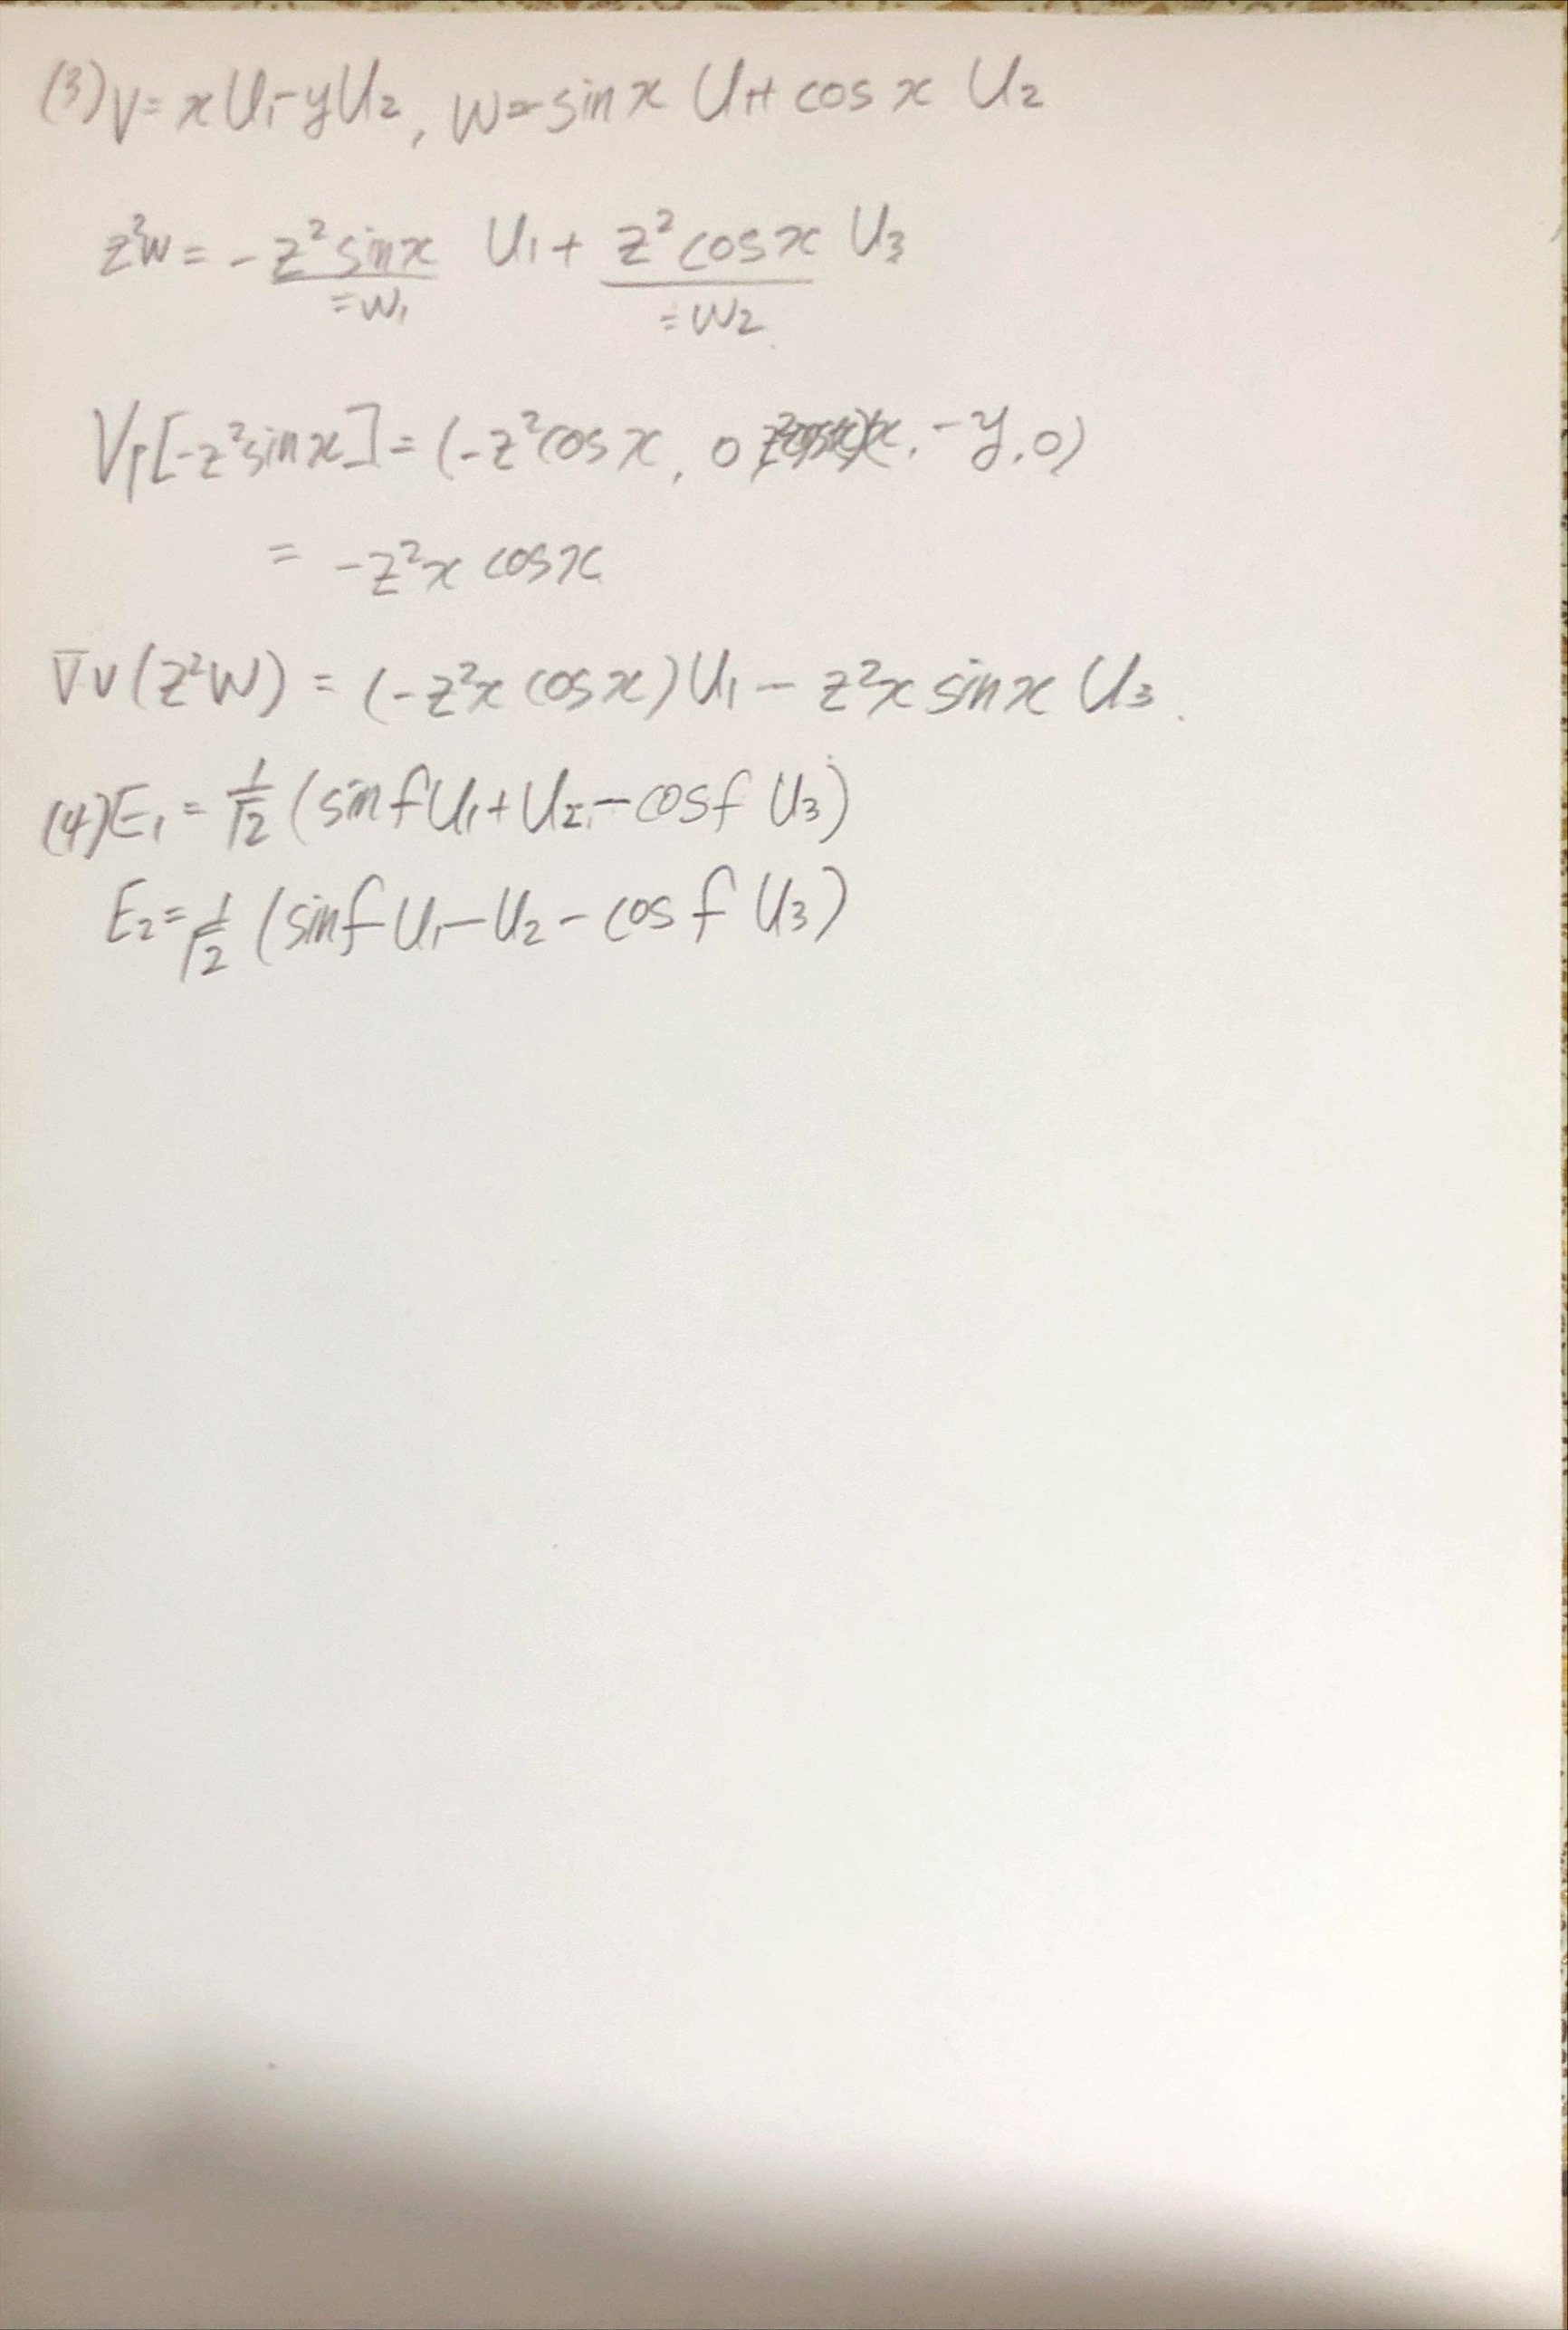 (3) V = x U₁ - y U₂, W = -sin x U₁ + cos x U₂
z²W = - z² sin x U₁ + z² cos x U₃
= W₁ = W₂
Vp[-z² sin x] = (-z² cos x, 0 x, -y, 0)
= -z² x cos x
∇v (z²W) = (-z² x cos x) U₁ - z² x sin x U₃.
(4) E₁ = 1/√2 (sin f U₁ + U₂ - cos f U₃)
E₂ = 1/√2 (sin f U₁ - U₂ - cos f U₃)